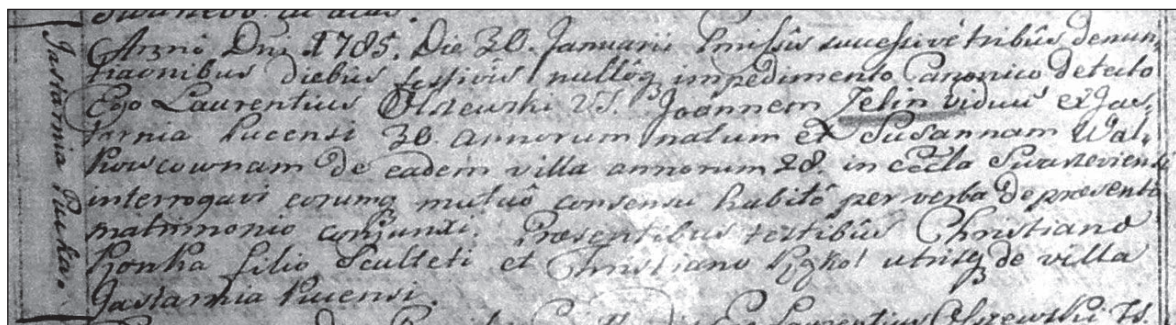 Anno Dni 1785. Die 30. Januarii pmissis successivè tribûs denun,
tiaonibus diebus festivis nullôq impedimento Canonico detecto
Ego Laurentius Olszewski VS. Joannem Zelin viduũ ex Jas,
tarnia Pucensi 30. annorum natum et Susannam Wal,
kowscownam de eadem villa annorum 28. in Eccla Swarzeviensi
interrogavi eorumq mutuô consensu habitô per verba de præsenti
matrimonio conjunxi. Præsentibus testibûs Christiano
Konka filio Sculteti et Christiano utrisq de villa
Jastarnia Pucensi.
Jastarnia Pucka
Laurentius Olszewski VS.